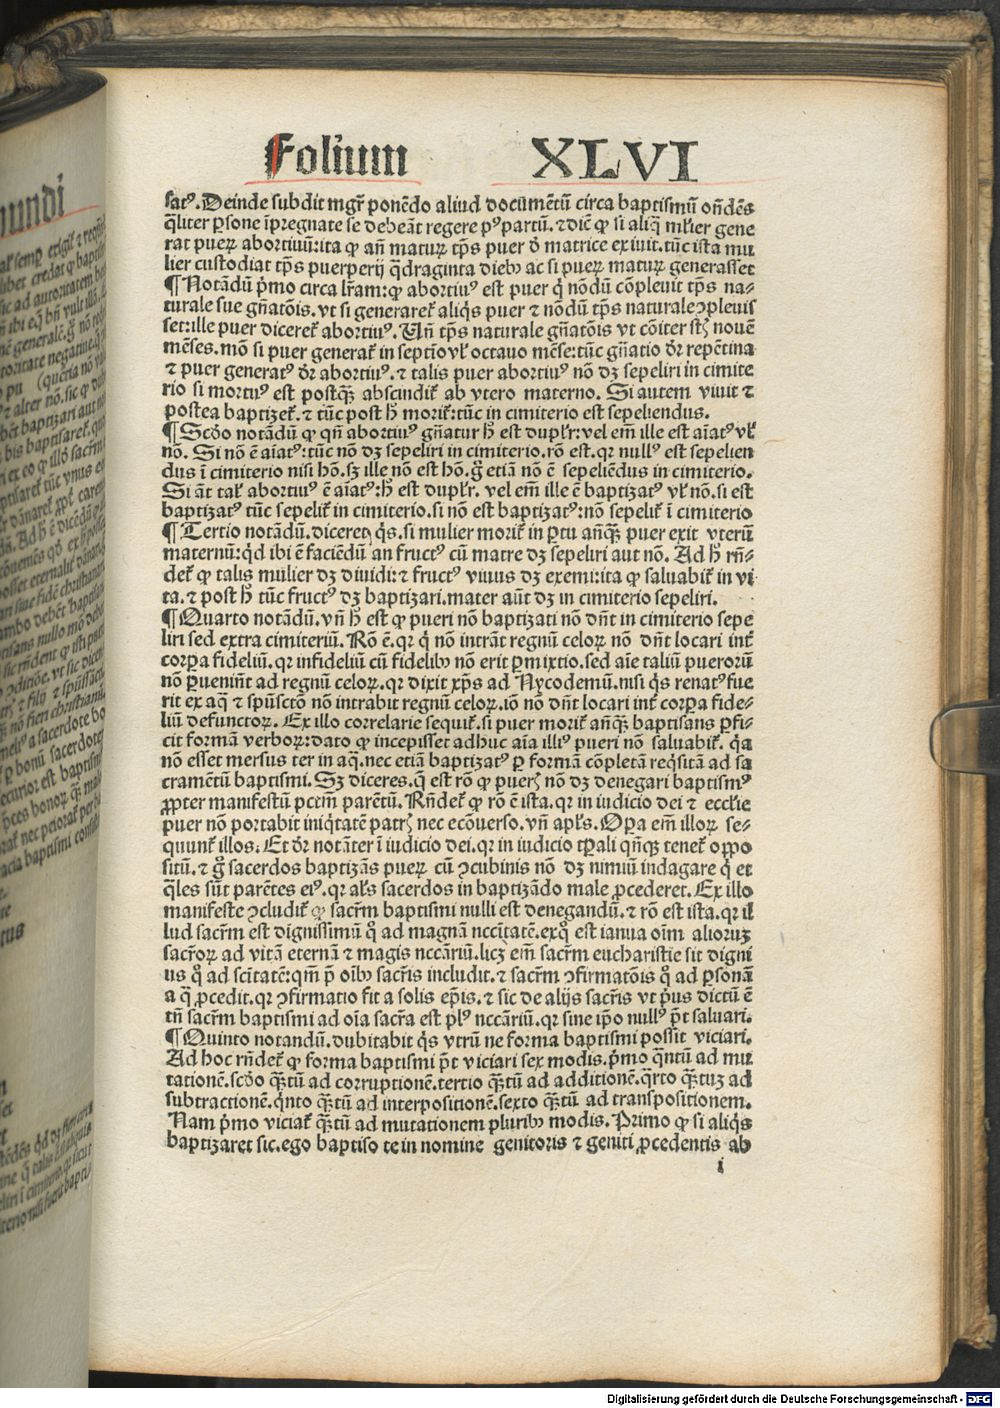 Foliũm XLVI
satꝰ. Deinde subdit mgr̃ ponẽdo aliud documẽtũ circa baptismũ oñdẽs
q̃liter ꝑsone ĩpregnate se debeãt regere pꝰ partũ. ⁊ dic̃ ꝙ si aliq̃ mlʼier gene
rat pueꝝ abortiuũ: ita ꝙ añ matuꝝ tp̃s puer õ matrice exiuit. tũc ista mu
lier custodiat tp̃s puerperij q̃draginta dieb⁊ ac si pueꝝ matuꝝ generasset
¶ Notãdũ p̃mo circa lr̃am: ꝙ abortiuꝰ est puer q̃ nõdũ cõpleuit tp̃s na-
turale sue gñatõis. vt si generareť aliq̃s puer ⁊ nõdũ tp̃s naturale ꝯpleuis
set: ille puer dicereť abortiuꝰ. Uñ tp̃s naturale gñatõis vt cõiter st̃ nouẽ
mẽses. mõ si puer generať in septĩo vľ octauo mẽse: tũc gñatio dr̃ repẽtina
⁊ puer generatꝰ dr̃ abortiuꝰ. ⁊ talis puer abortiuꝰ nõ dꝫ sepeliri in cimite
rio si mortuꝰ est postq̃ȝ abscindiť ab vtero materno. Si autem viuit ⁊
postea baptizeť. ⁊ tũc post h̃ moriť: tũc in cimiterio est sepeliendus.
¶ Scďo notãdũ ꝙ qñ abortiuꝰ gñatur h̃ est dupľr: vel em̃ ille est aĩatꝰ vľ
nõ. Si nõ ẽ aĩatꝰ: tũc nõ dꝫ sepeliri in cimiterio. rõ est. qꝛ nullꝰ est sepelien
dus ĩ cimiterio nisi hõ. sꝫ ille nõ est hõ. g̃ etiã nõ ẽ sepeliẽdus in cimiterio.
Si ãt taľ abortiuꝰ ẽ aĩatꝰ: h̃ est dupľr. vel em̃ ille ẽ baptizatꝰ vľ nõ. si est
baptizatꝰ tũc sepeliť in cimiterio. si nõ est baptizatꝰ: nõ sepeliť ĩ cimiterio
¶ Tertio notãdũ. diceret q̃s. si mulier moriť in ꝑtu añq̃ȝ puer exit vterũ
maternũ: q̃d ibi ẽ faciẽdũ an fructꝰ cũ matre dꝫ sepeliri aut nõ. Ad h̃ rñ-
deť ꝙ talis mulier dꝫ diuidi: ⁊ fructꝰ viuus dꝫ exemi: ita ꝙ saluabiť in vi
ta. ⁊ post h̃ tũc fructꝰ dꝫ baptizari. mater aũt dꝫ in cimiterio sepeliri.
¶ Quarto notãdũ. vñ h̃ est ꝙ pueri nõ baptizati nõ dñt in cimiterio sepe
liri sed extra cimiteriũ. Rõ ẽ. qꝛ q̃ nõ intrãt regnũ celoꝝ nõ dñt locari int̃
corꝑa fideliũ. qꝛ infideliũ cũ fidelib⁊ nõ erit ꝑmixtio. sed aĩe taliũ puerorũ
nõ ꝑueniñt ad regnũ celoꝝ. qꝛ dixit xp̃s ad Nycodemũ. nisi q̃s renatꝰ fue
rit ex aq̃ ⁊ spũsctõ nõ intrabit regnũ celoꝝ. iõ nõ dñt locari int̃ corꝑa fide-
liũ defunctoꝝ. Ex illo correlarie sequiť. si puer moriť añq̃ȝ baptisans ꝑfi-
cit formã verboꝝ: dato ꝙ incepisset adhuc aĩa illiꝰ pueri nõ saluabiť. q̃a
nõ esset mersus ter in aq̃. nec etiã baptizatꝰ ꝑ formã cõpletã req̃sitã ad sa
cramẽtũ baptismi. Sꝫ diceres. q̃ est rõ ꝙ pueř nõ dꝫ denegari baptismꝰ
ꝓpter manifestũ pctm̃ parẽtũ. Rñdeť ꝙ rõ ẽ ista. qꝛ in iudicio dei ⁊ ecclʼie
puer nõ portabit iniq̃tatẽ patř nec ecõuerso. vñ apľs. Oꝑa em̃ illoꝝ se-
quunť illos. Et dr̃ notãter ĩ iudicio dei. qꝛ in iudicio tꝑali qñqȝ teneť oppo
situ. ⁊ g̃ sacerdos baptizãs pueꝝ cũ ꝯcubinis nõ dꝫ nimiũ indagare q̃ et
q̃les sũt parẽtes eiꝰ. qꝛ aľs sacerdos in baptizãdo male ꝓcederet. Ex illo
manifeste ꝯcludiť ꝙ sacrm̃ baptismi nulli est denegandũ. ⁊ rõ est ista. qꝛ il
lud sacrm̃ est dignissimũ q̃ ad magnã nccĩtatẽ. exq̃ est ianua oĩm aliorum
sacroꝝ ad vitã eternã ⁊ magis nccãriũ. licꝫ em̃ sacrm̃ eucharistie sit digni
us q̃ ad scĩtatẽ: qm̃ p̃ oĩb⁊ sacrĩs includit. ⁊ sacrm̃ ꝯfirmatõis q̃ ad ꝑsonã
a q̃ ꝓcedit. qꝛ ꝯfirmatio fit a solis ep̃is. ⁊ sic de alijs sacrĩs vt p̃us dictũ ẽ
tñ sacrm̃ baptismi ad oĩa sacr̃a est plꝰ nccãriũ. qꝛ sine ip̃o nullꝰ p̃t saluari.
¶ Quinto notandũ. dubitabit q̃s vtrũ ne forma baptismi possit viciari.
Ad hoc rñdeť ꝙ forma baptismi p̃t viciari sex modis. p̃mo q̃ntũ ad mu
tationẽ. scďo q̃ȝtũ ad corruptionẽ. tertio q̃ȝtũ ad additionẽ. q̃rto q̃ȝtuȝ ad
subtractionẽ. q̃nto q̃ȝtũ ad interpositionẽ. sexto q̃ȝtũ ad transpositionem.
Nam p̃mo viciať q̃ȝtũ ad mutationem plurib⁊ modis. Primo ꝙ si aliq̃s
baptizaret sic. ego baptiso te in nomine genitoris ⁊ geniti ꝓcedentis ab
i
Digitalisierung gefördert durch die Deutsche Forschungsgemeinschaft - DFG